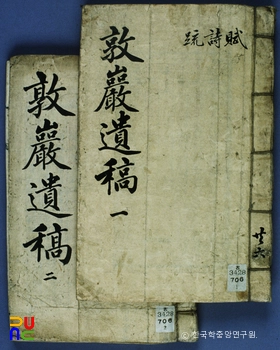 賦詩疏
敦巖遺稿
一
敦巖遺稿
二
3428
706
3428
706
2
© 한국학중앙연구원